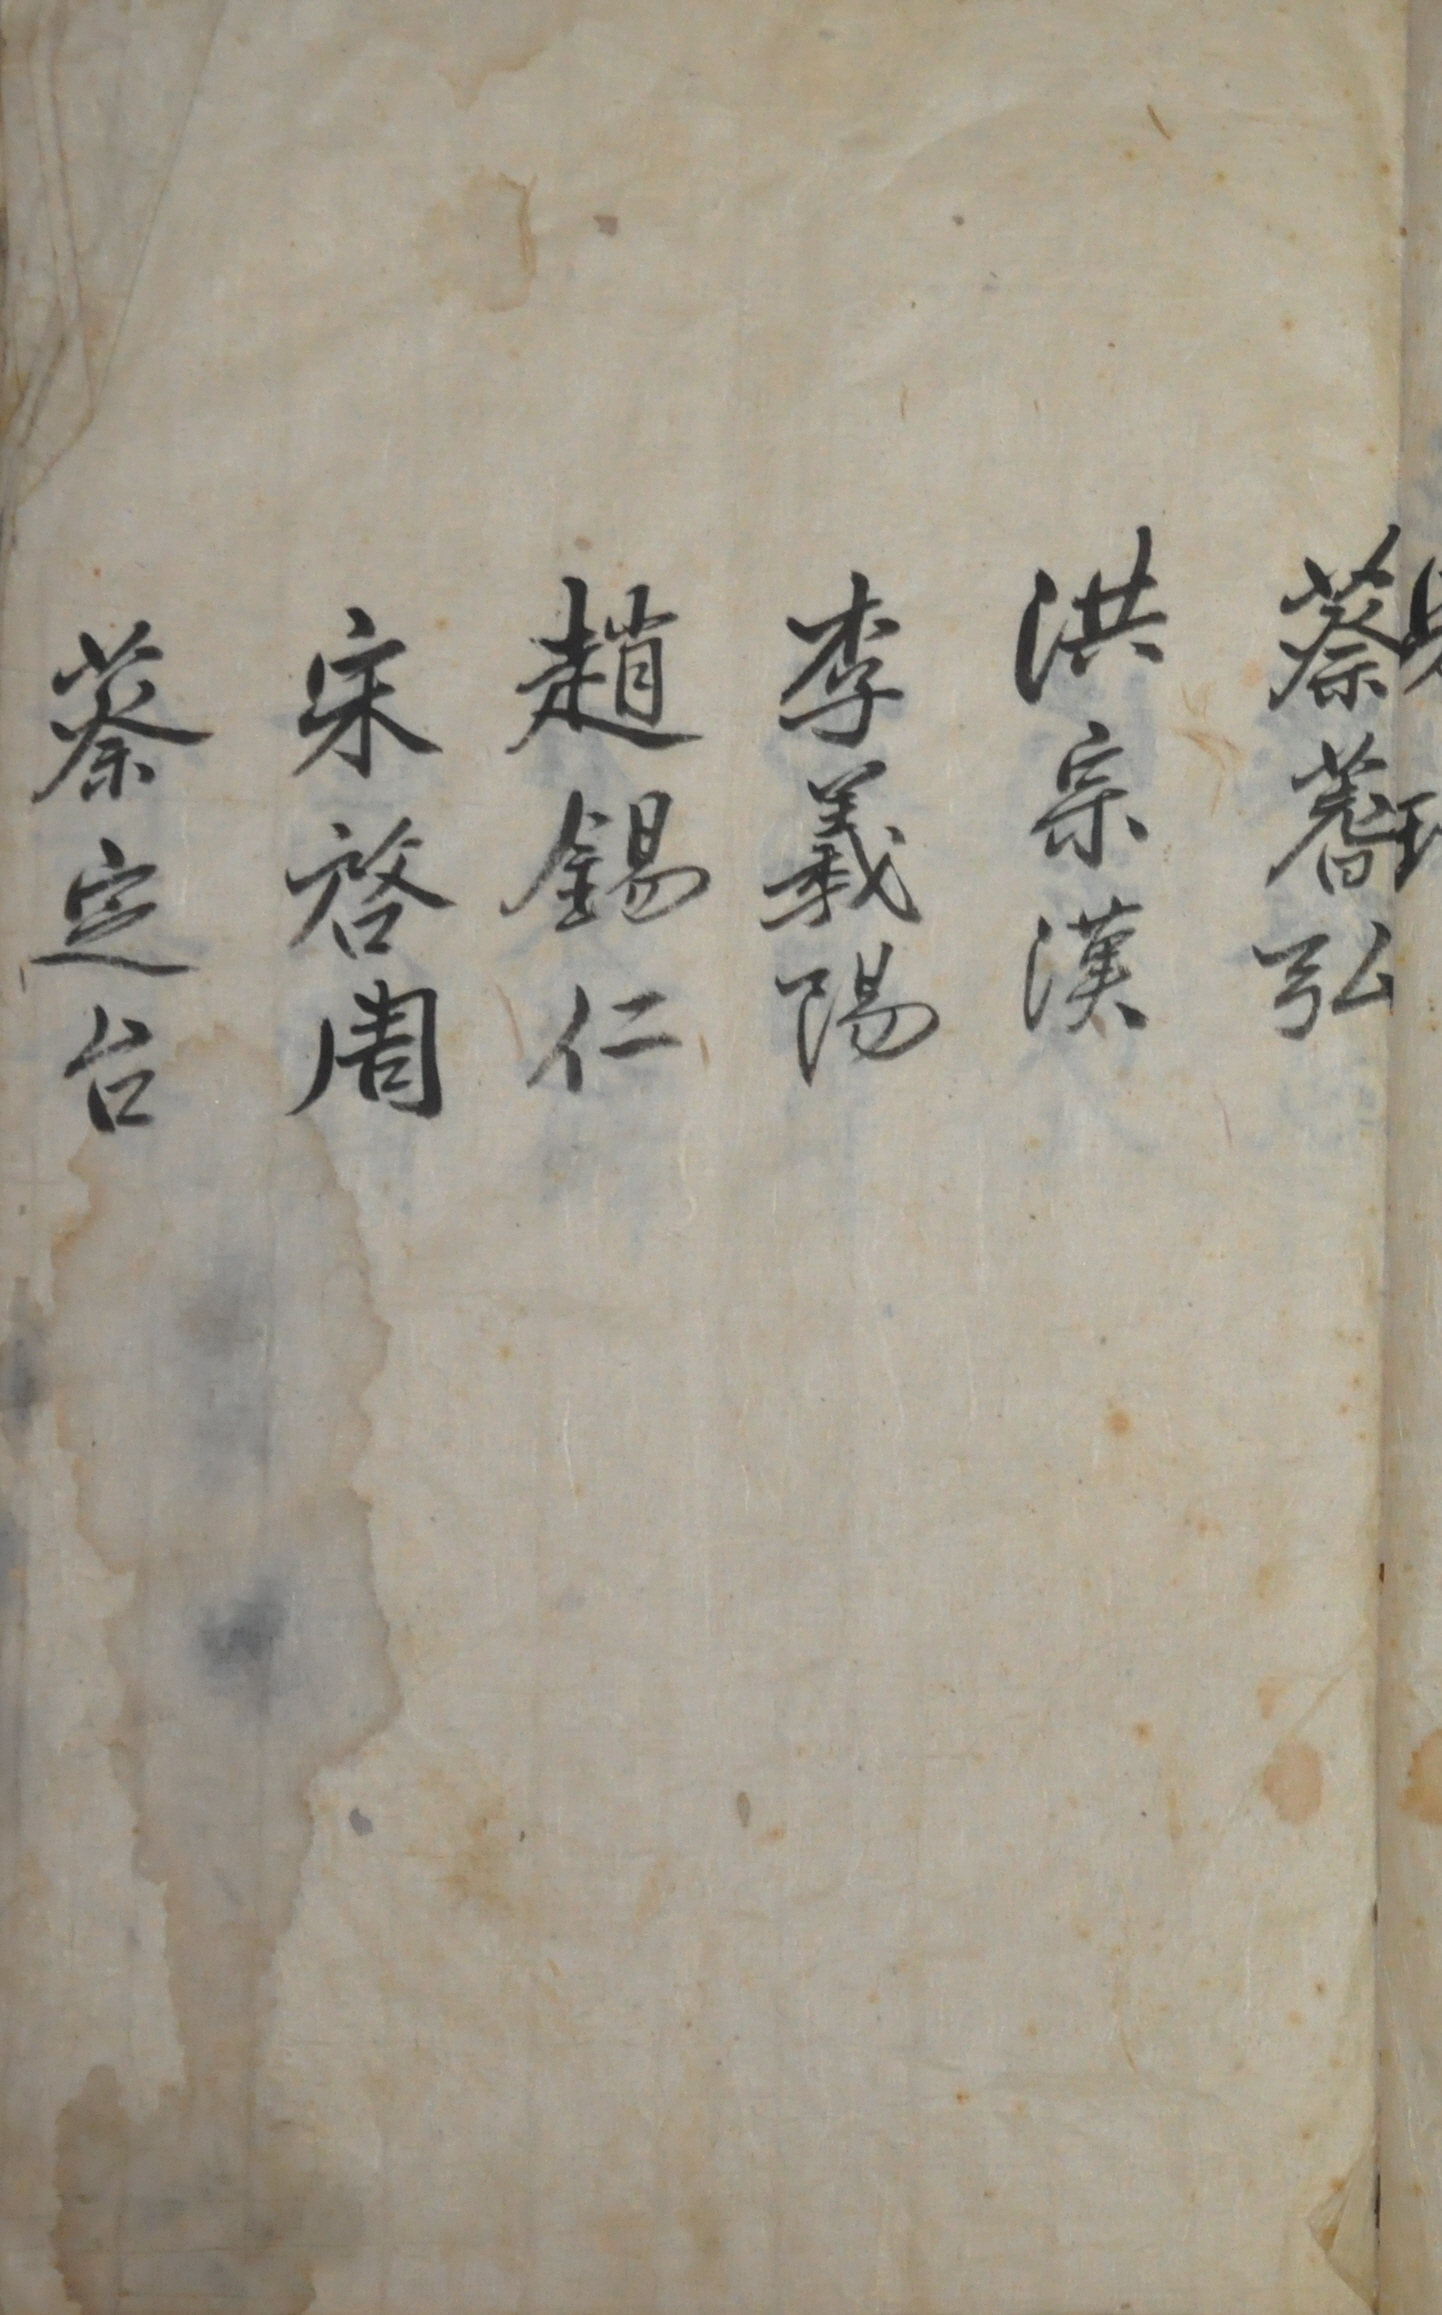 蔡蓍弘
洪宗漢
李義陽
趙錫仁
宋啓周
蔡定台